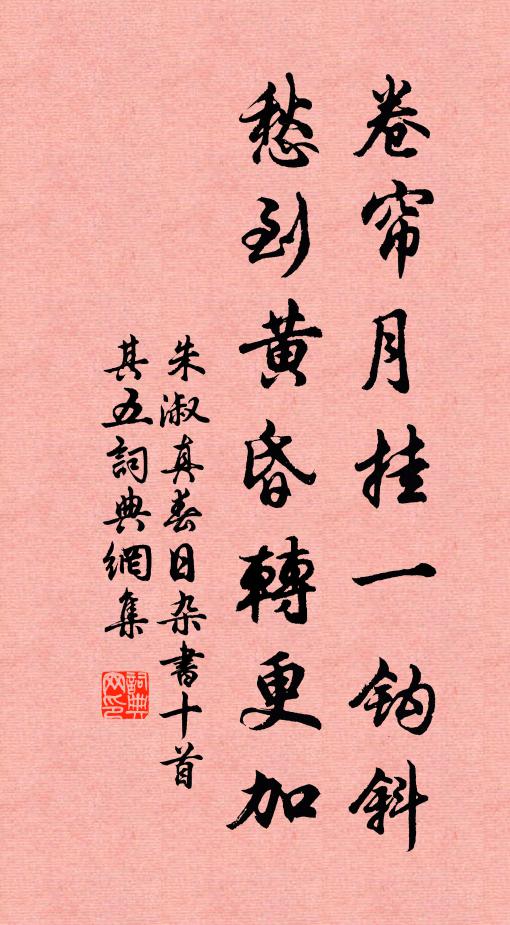 卷帘月挂一钩斜
愁到黄昏轉更加
朱淑真春日杂書十首
其五詞典網集
詞典網印